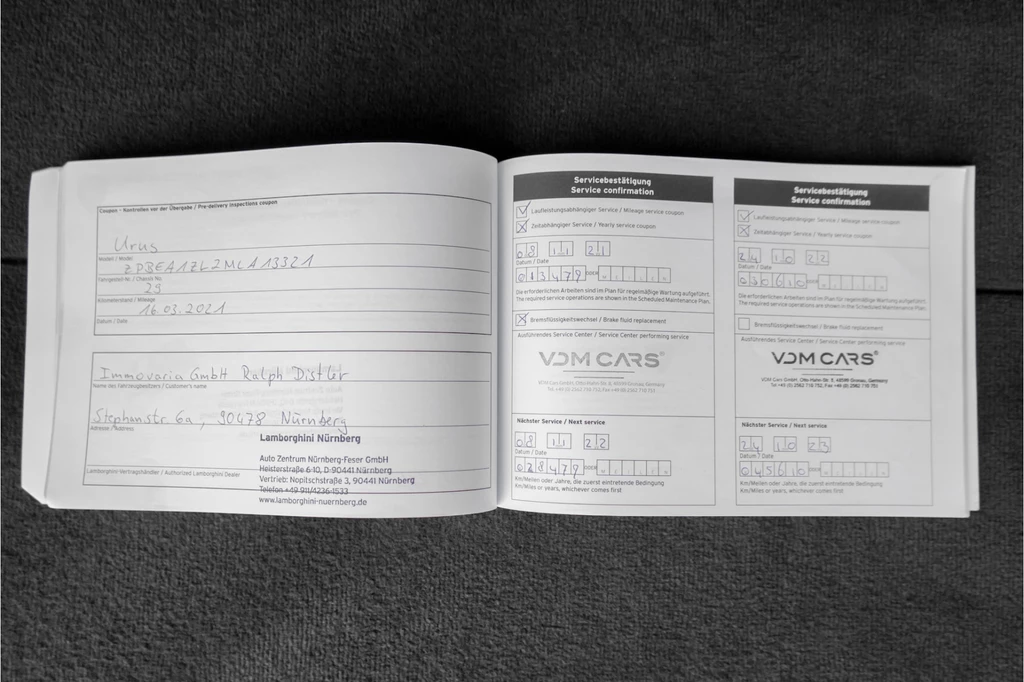 Coupon - Kontrollen vor der Übergabe / Pre-delivery inspections coupon
Urus
Modell / Model
ZPBEA1ZL2MLA13321
Fahrgestell-Nr. / Chassis No
29
Kilometerstand / Mileage
16.03.2021
Datum / Date
Immovaria GmbH Ralph Distler
Name des Fahrzeugbesitzers / Customer's name
Stephanstr 6a, 90478 Nürnberg
Adresse / Address
Lamborghini Nürnberg
Auto Zentrum Nürnberg-Feser GmbH
Heisterstraße 6-10, D-90441 Nürnberg
Vertrieb: Nopitschstraße 3, 90441 Nürnberg
Lamborghini-Vertragshändler / Authorized Lamborghini Dealer
Telefon +49 911/4236-1533
www.lamborghini-nuernberg.de
Servicebestätigung
Service confirmation
Laufleistungsabhängiger Service / Mileage service coupon
Zeitabhängiger Service / Yearly service coupon
08 11 21
Datum / Date
013479 ODER
Die erforderlichen Arbeiten sind im Plan für regelmäßige Wartung aufgeführt.
The required service operations are shown in the Scheduled Maintenance Plan.
Bremsflüssigkeitswechsel / Brake fluid replacement
Ausführendes Service Center / Service Center performing service
VDM CARS®
VDM Cars GmbH, Otto-Hahn-Str. 3, 48599 Gronau, Germany
Tel. +49 (0) 2562 718 752, Fax +49 (0) 2562 718 751
Nächster Service / Next service
08 11 22
Datum / Date
028479 ODER
Km/Meilen oder Jahre, die zuerst eintretende Bedingung
Km/Miles or years, whichever comes first
Servicebestätigung
Service confirmation
Laufleistungsabhängiger Service / Mileage service coupon
Zeitabhängiger Service / Yearly service coupon
24 10 22
Datum / Date
030610 ODER
Die erforderlichen Arbeiten sind im Plan für regelmäßige Wartung aufgeführt.
The required service operations are shown in the Scheduled Maintenance Plan.
Bremsflüssigkeitswechsel / Brake fluid replacement
Ausführendes Service Center / Service Center performing service
VDM CARS®
VDM Cars GmbH, Otto-Hahn-Str. 3, 48599 Gronau, Germany
Tel +49 (0) 2562 718 752, Fax +49 (0) 2562 718 751
Nächster Service / Next service
24 10 23
Datum / Date
045610 ODER
Km/Meilen oder Jahre, die zuerst eintretende Bedingung
Km/Miles or years, whichever comes first